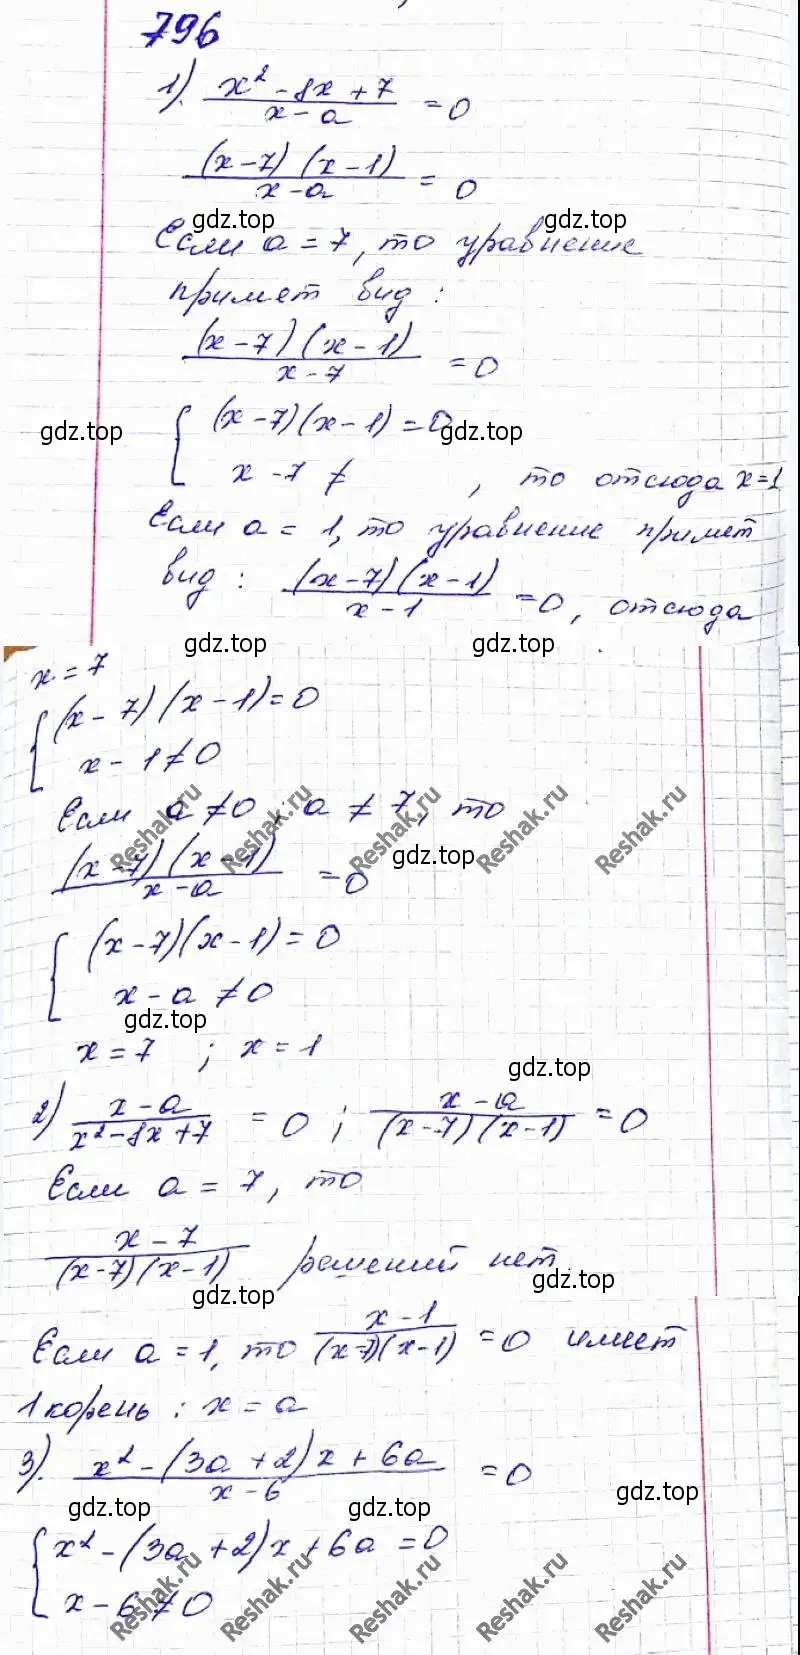 796
1). x² - 8x + 7 / x - a = 0
(x-7)(x-1) / x-a = 0
gdz.top gdz.top
Если a = 7, то уравнение
примет вид:
(x-7)(x-1) / x-7 = 0
{ (x-7)(x-1) = 0
gdz.top gdz.top
x - 7 ≠ , то отсюда x=1
Если a = 1, то уравнение примет
вид: (x-7)(x-1) / x-1 = 0, отсюда
gdz.top gdz.top
x = 7
{ (x-7)(x-1) = 0
x - 1 ≠ 0
Если a ≠ 0; a ≠ 7, то
Reshak.ru Reshak.ru Reshak.ru Reshak.ru
(x-7)(x-1) / x-a = 0
gdz.top
{ (x-7)(x-1) = 0
x - a ≠ 0
gdz.top
x = 7 ; x = 1
gdz.top
2) x-a / x²-8x+7 = 0 ; x-a / (x-7)(x-1) = 0
Если a = 7, то
x-7 / (x-7)(x-1) решений нет.
gdz.top gdz.top
Если a = 1, то x-1 / (x-7)(x-1) = 0 имеет
1 корень: x = a
3). x² - (3a+2)x + 6a / x-6 = 0
gdz.top gdz.top gdz.top
{ x² - (3a+2)x + 6a = 0
x - 6 ≠ 0
Reshak.ru Reshak.ru Reshak.ru Reshak.ru